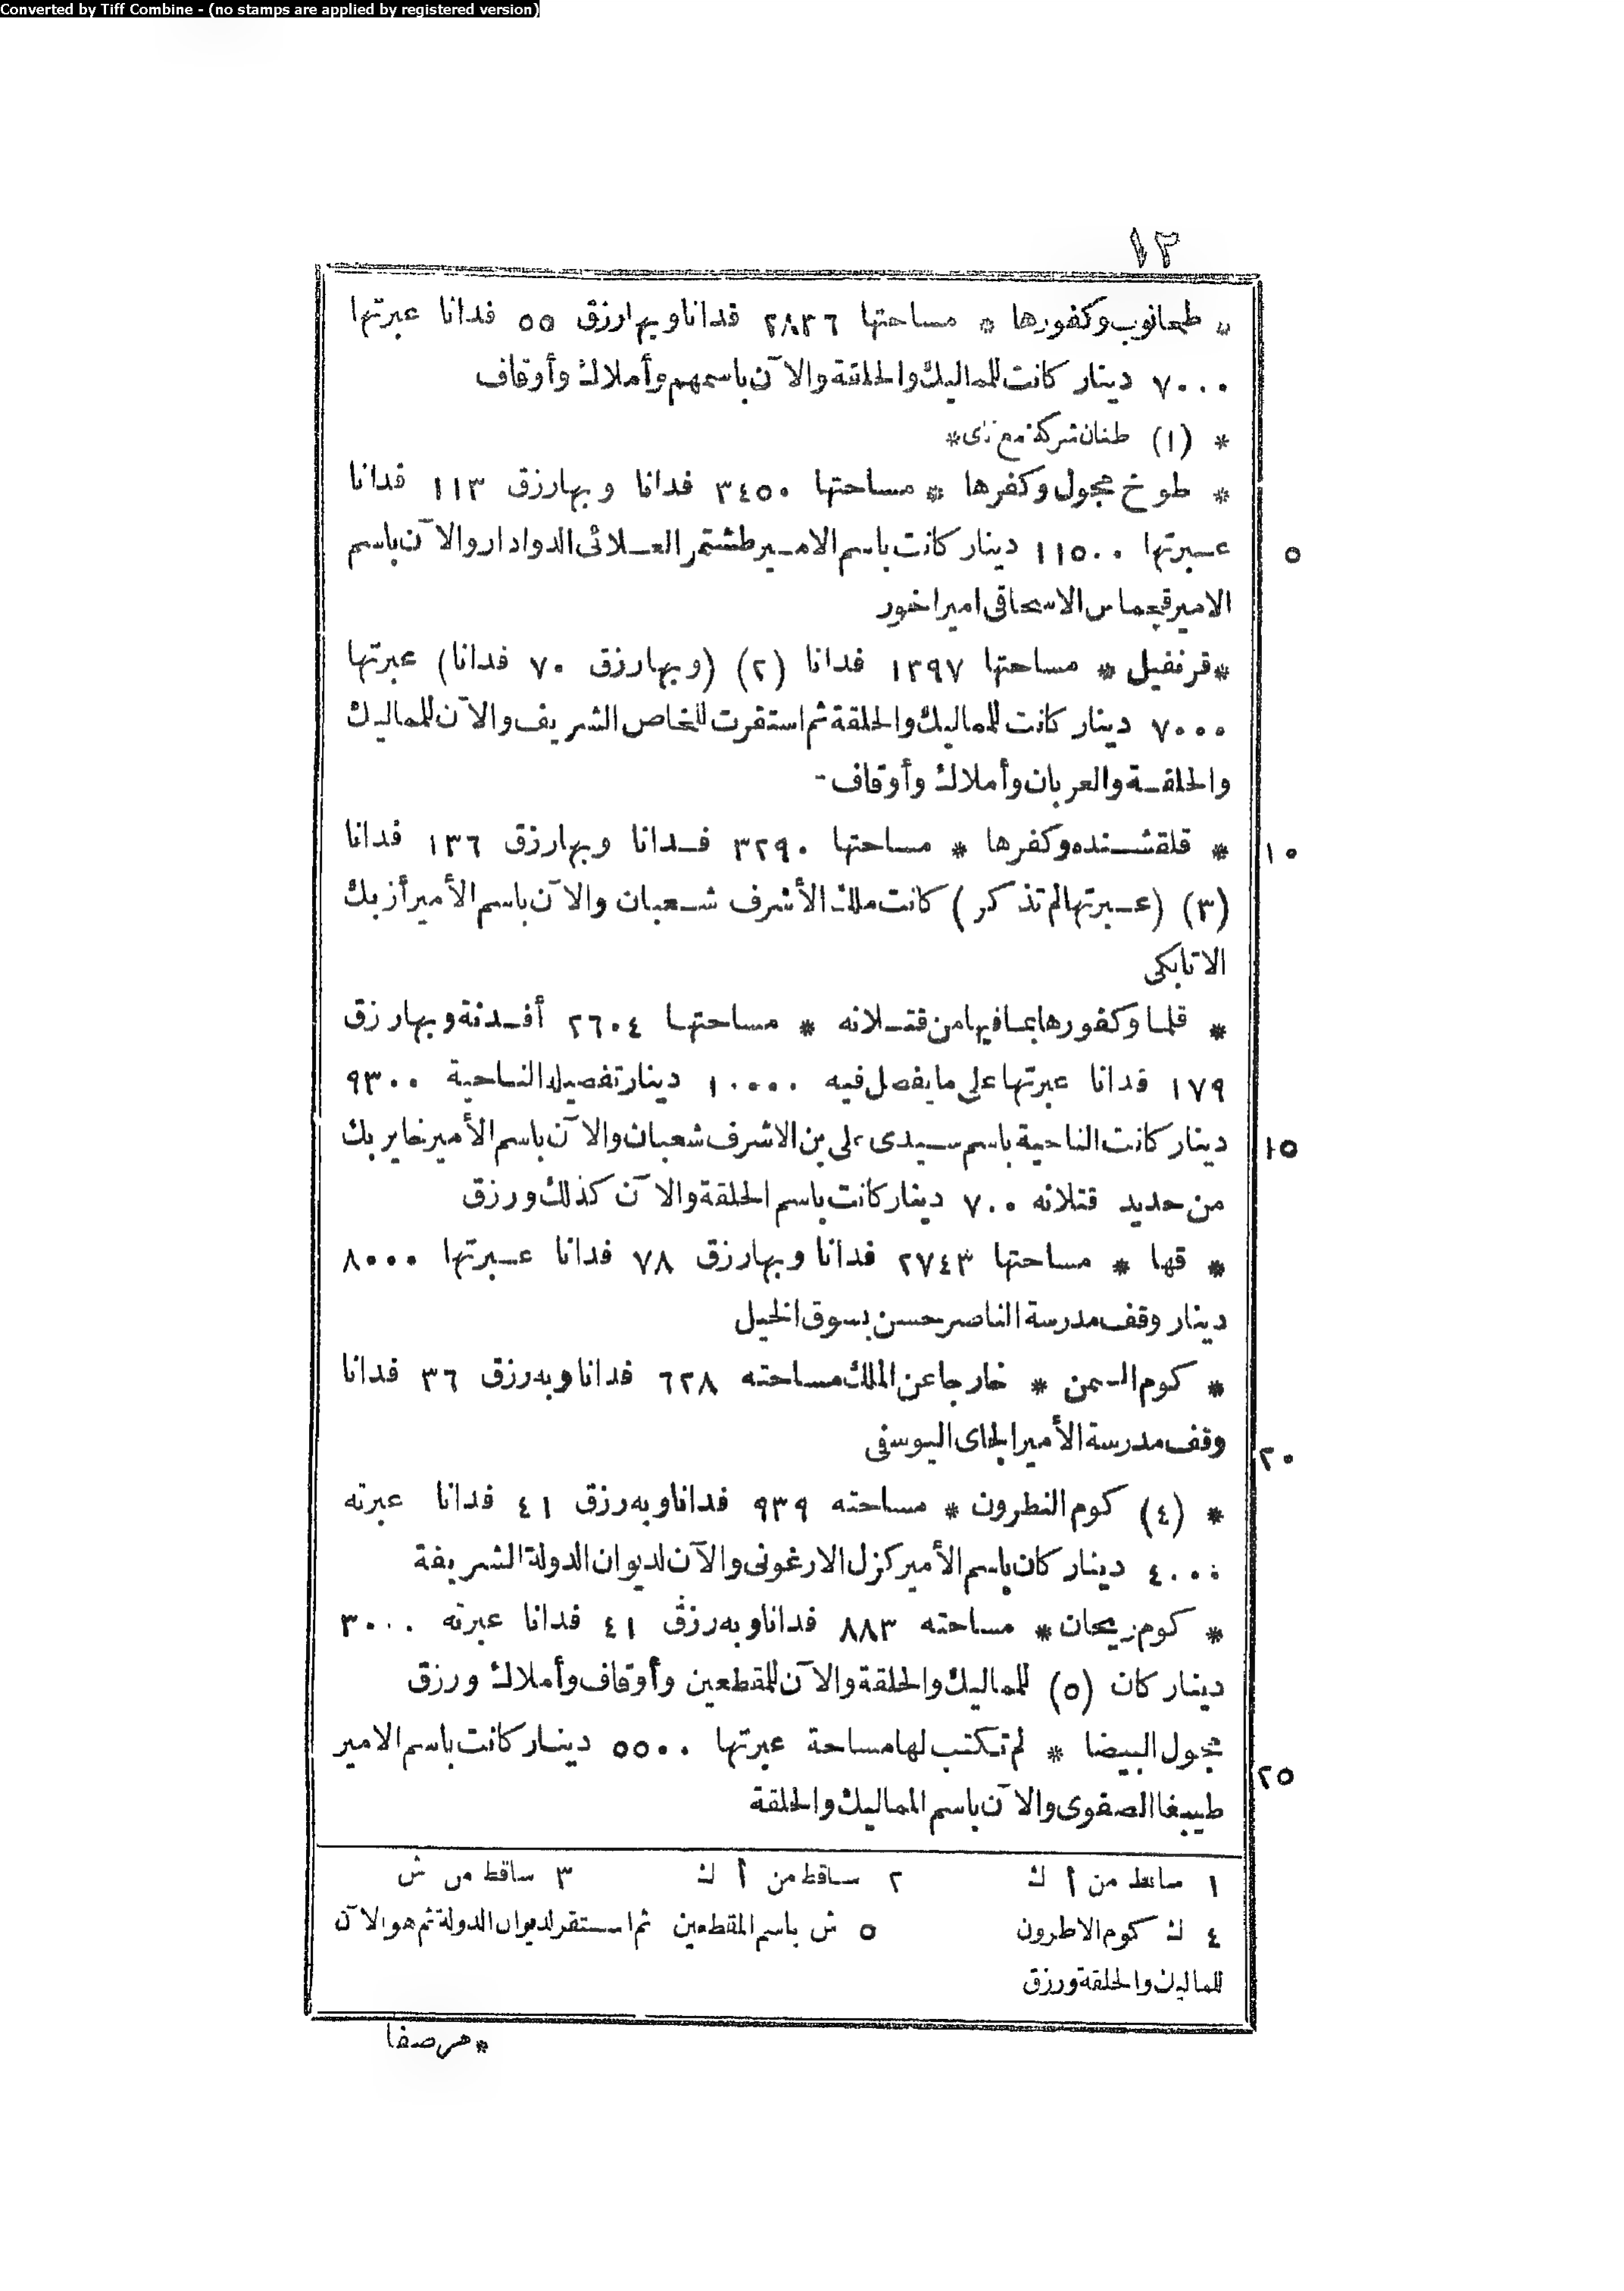 Converted by Tiff Combine - (no stamps are applied by registered version)
١٣
* طحانوب وكفورها * مساحتها ٢٨٣٦ فدانا وبها رزق ٥٥ فدانا عبرتها
٧٠٠٠ دينار كانت للماليك والحلقة والآن باسمهم وأملاك وأوقاف
* (١) طنان شركة مع *
* طوخ مجول وكفرها * مساحتها ٣٤٥٠ فدانا وبها رزق ١١٣ فدانا
عبرتها ١١٥٠٠ دينار كانت باسم الامير طشتمر العلائى الدوادار والآن باسم
٥
الامير قجماس الاسحاقى امير اخور
* قرنفيل * مساحتها ١٣٩٧ فدانا (٢) (وبها رزق ٧٠ فدانا) عبرتها
٧٠٠٠ دينار كانت للماليك والحلقة ثم استقرت للخاص الشريف والآن للماليك
والحلقة والعربان وأملاك وأوقاف -
* قلقشنده وكفرها * مساحتها ٣٢٩٠ فدانا وبها رزق ١٣٦ فدانا
١٠
(٣) (عبرتها لم تذكر) كانت ملك الأشرف شعبان والآن باسم الأمير أزبك
الاتابكى
* قلما وكفورها بما فيها من قتلانه * مساحتها ٢٦٠٤ أفدنة وبها رزق
١٧٩ فدانا عبرتها على ما يفصل فيه ١٠٠٠٠ دينار تفصيله الناحية ٩٣٠٠
دينار كانت الناحية باسم سيدى على بن الاشرف شعبان والآن باسم الأمير خاير بك
١٥
من حديد قتلانه ٧٠٠ دينار كانت باسم الحلقة والآن كذلك ورزق
* قها * مساحتها ٢٧٤٣ فدانا وبها رزق ٧٨ فدانا عبرتها ٨٠٠٠
دينار وقف مدرسة الناصر حسن بسوق الخيل
* كوم السمن * خارجا عن الملك مساحته ٦٢٨ فدانا وبه رزق ٣٦ فدانا
وقف مدرسة الأمير الجاى اليوسفى
٢٠
* (٤) كوم النطرون * مساحته ٩٣٩ فدانا وبه رزق ٤١ فدانا عبرته
٤٠٠٠ دينار كان باسم الأمير كزل الارغونى والآن لديوان الدولة الشريفة
* كوم ريحان * مساحته ٨٨٣ فدانا وبه رزق ٤١ فدانا عبرته ٣٠٠٠
دينار كان (٥) للماليك والحلقة والآن للمقطعين وأوقاف وأملاك ورزق
مجول البيضا * لم تكتب لها مساحة عبرتها ٥٥٠٠ دينار كانت باسم الامير
٢٥
طيبغا الصفوى والآن باسم المماليك والحلقة
١ ساقط من أ ك ٢ ساقط من أ ك ٣ ساقط من ش
٤ ك كوم الاطرون ٥ ش باسم المقطعين ثم استقر لديوان الدولة ثم هو الآن
للماليك والحلقة ورزق
* مرصفا